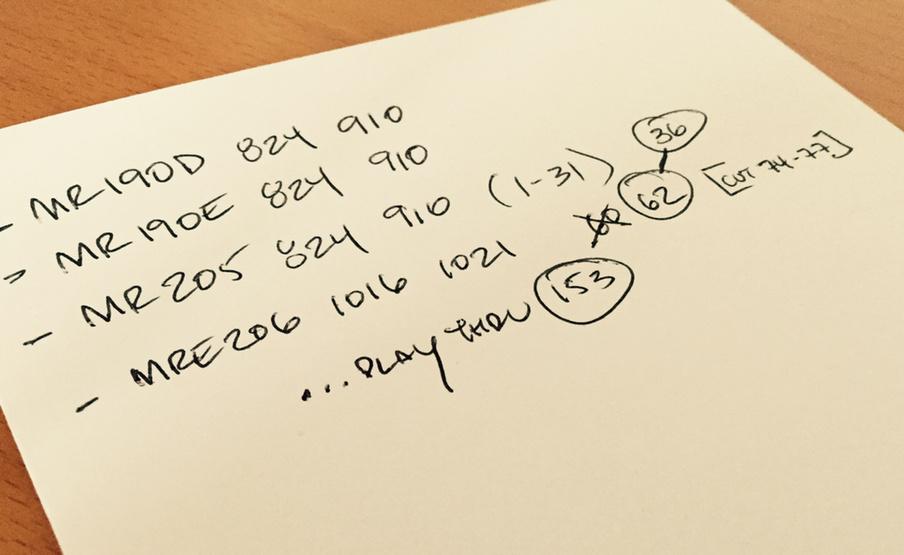 - MR190D 824 910
- MR190E 824 910
- MR205 824 910 (1-31) 62 36 [CUT 74-77]
- MRE206 1016 1021
...PLAY THRU 153